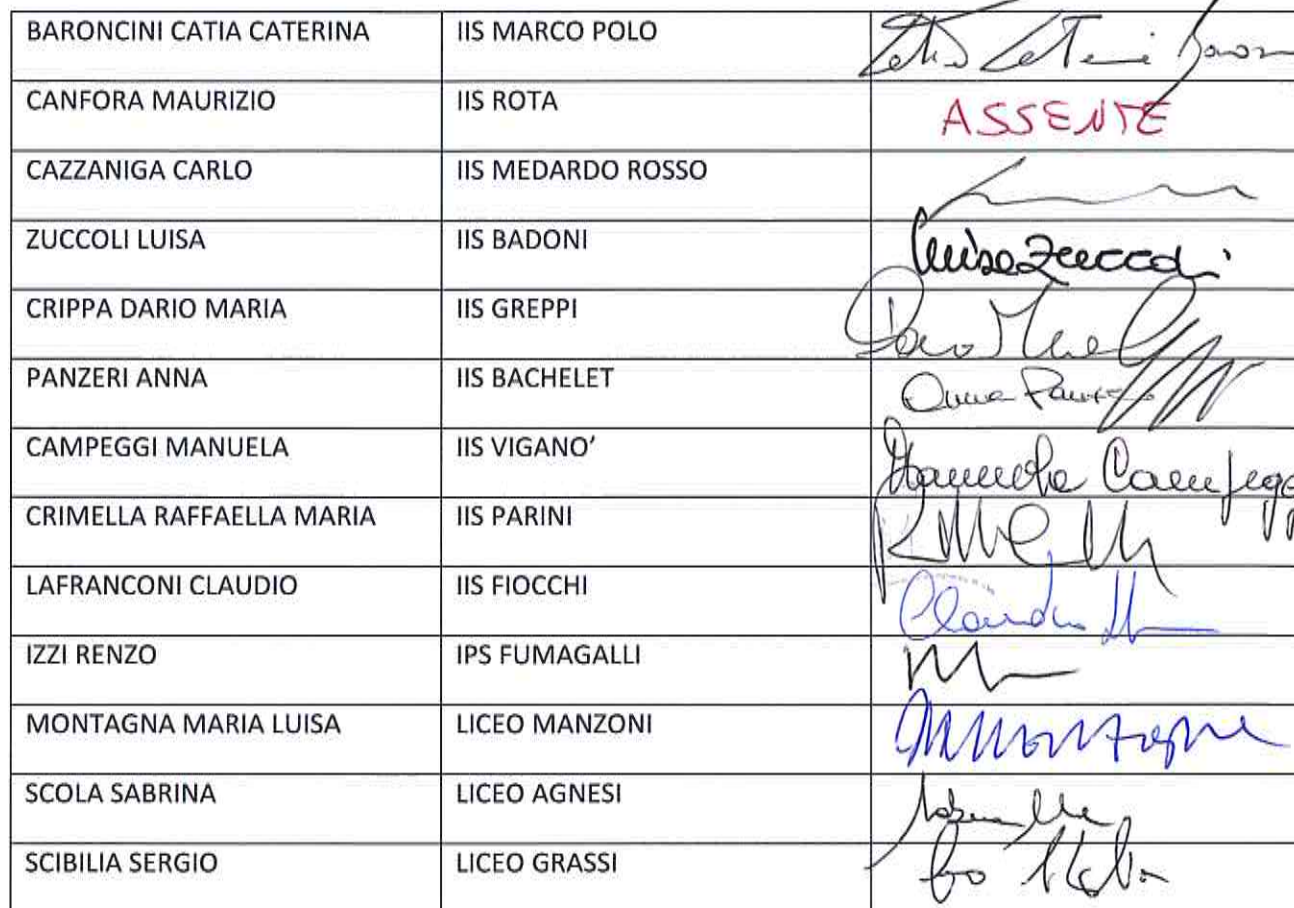 BARONCINI CATIA CATERINA IIS MARCO POLO
CANFORA MAURIZIO IIS ROTA ASSENTE
CAZZANIGA CARLO IIS MEDARDO ROSSO
ZUCCOLI LUISA IIS BADONI Luisa Zuccoli
CRIPPA DARIO MARIA IIS GREPPI
PANZERI ANNA IIS BACHELET Anna Panzeri
CAMPEGGI MANUELA IIS VIGANO’ Manuela Campegg
CRIMELLA RAFFAELLA MARIA IIS PARINI
LAFRANCONI CLAUDIO IIS FIOCCHI Claudio
IZZI RENZO IPS FUMAGALLI
MONTAGNA MARIA LUISA LICEO MANZONI
SCOLA SABRINA LICEO AGNESI
SCIBILIA SERGIO LICEO GRASSI